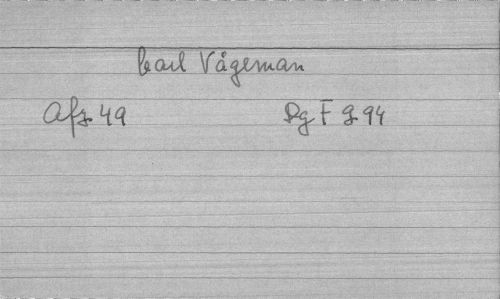 Carl Vågeman
Afz 49 Dg F g 94